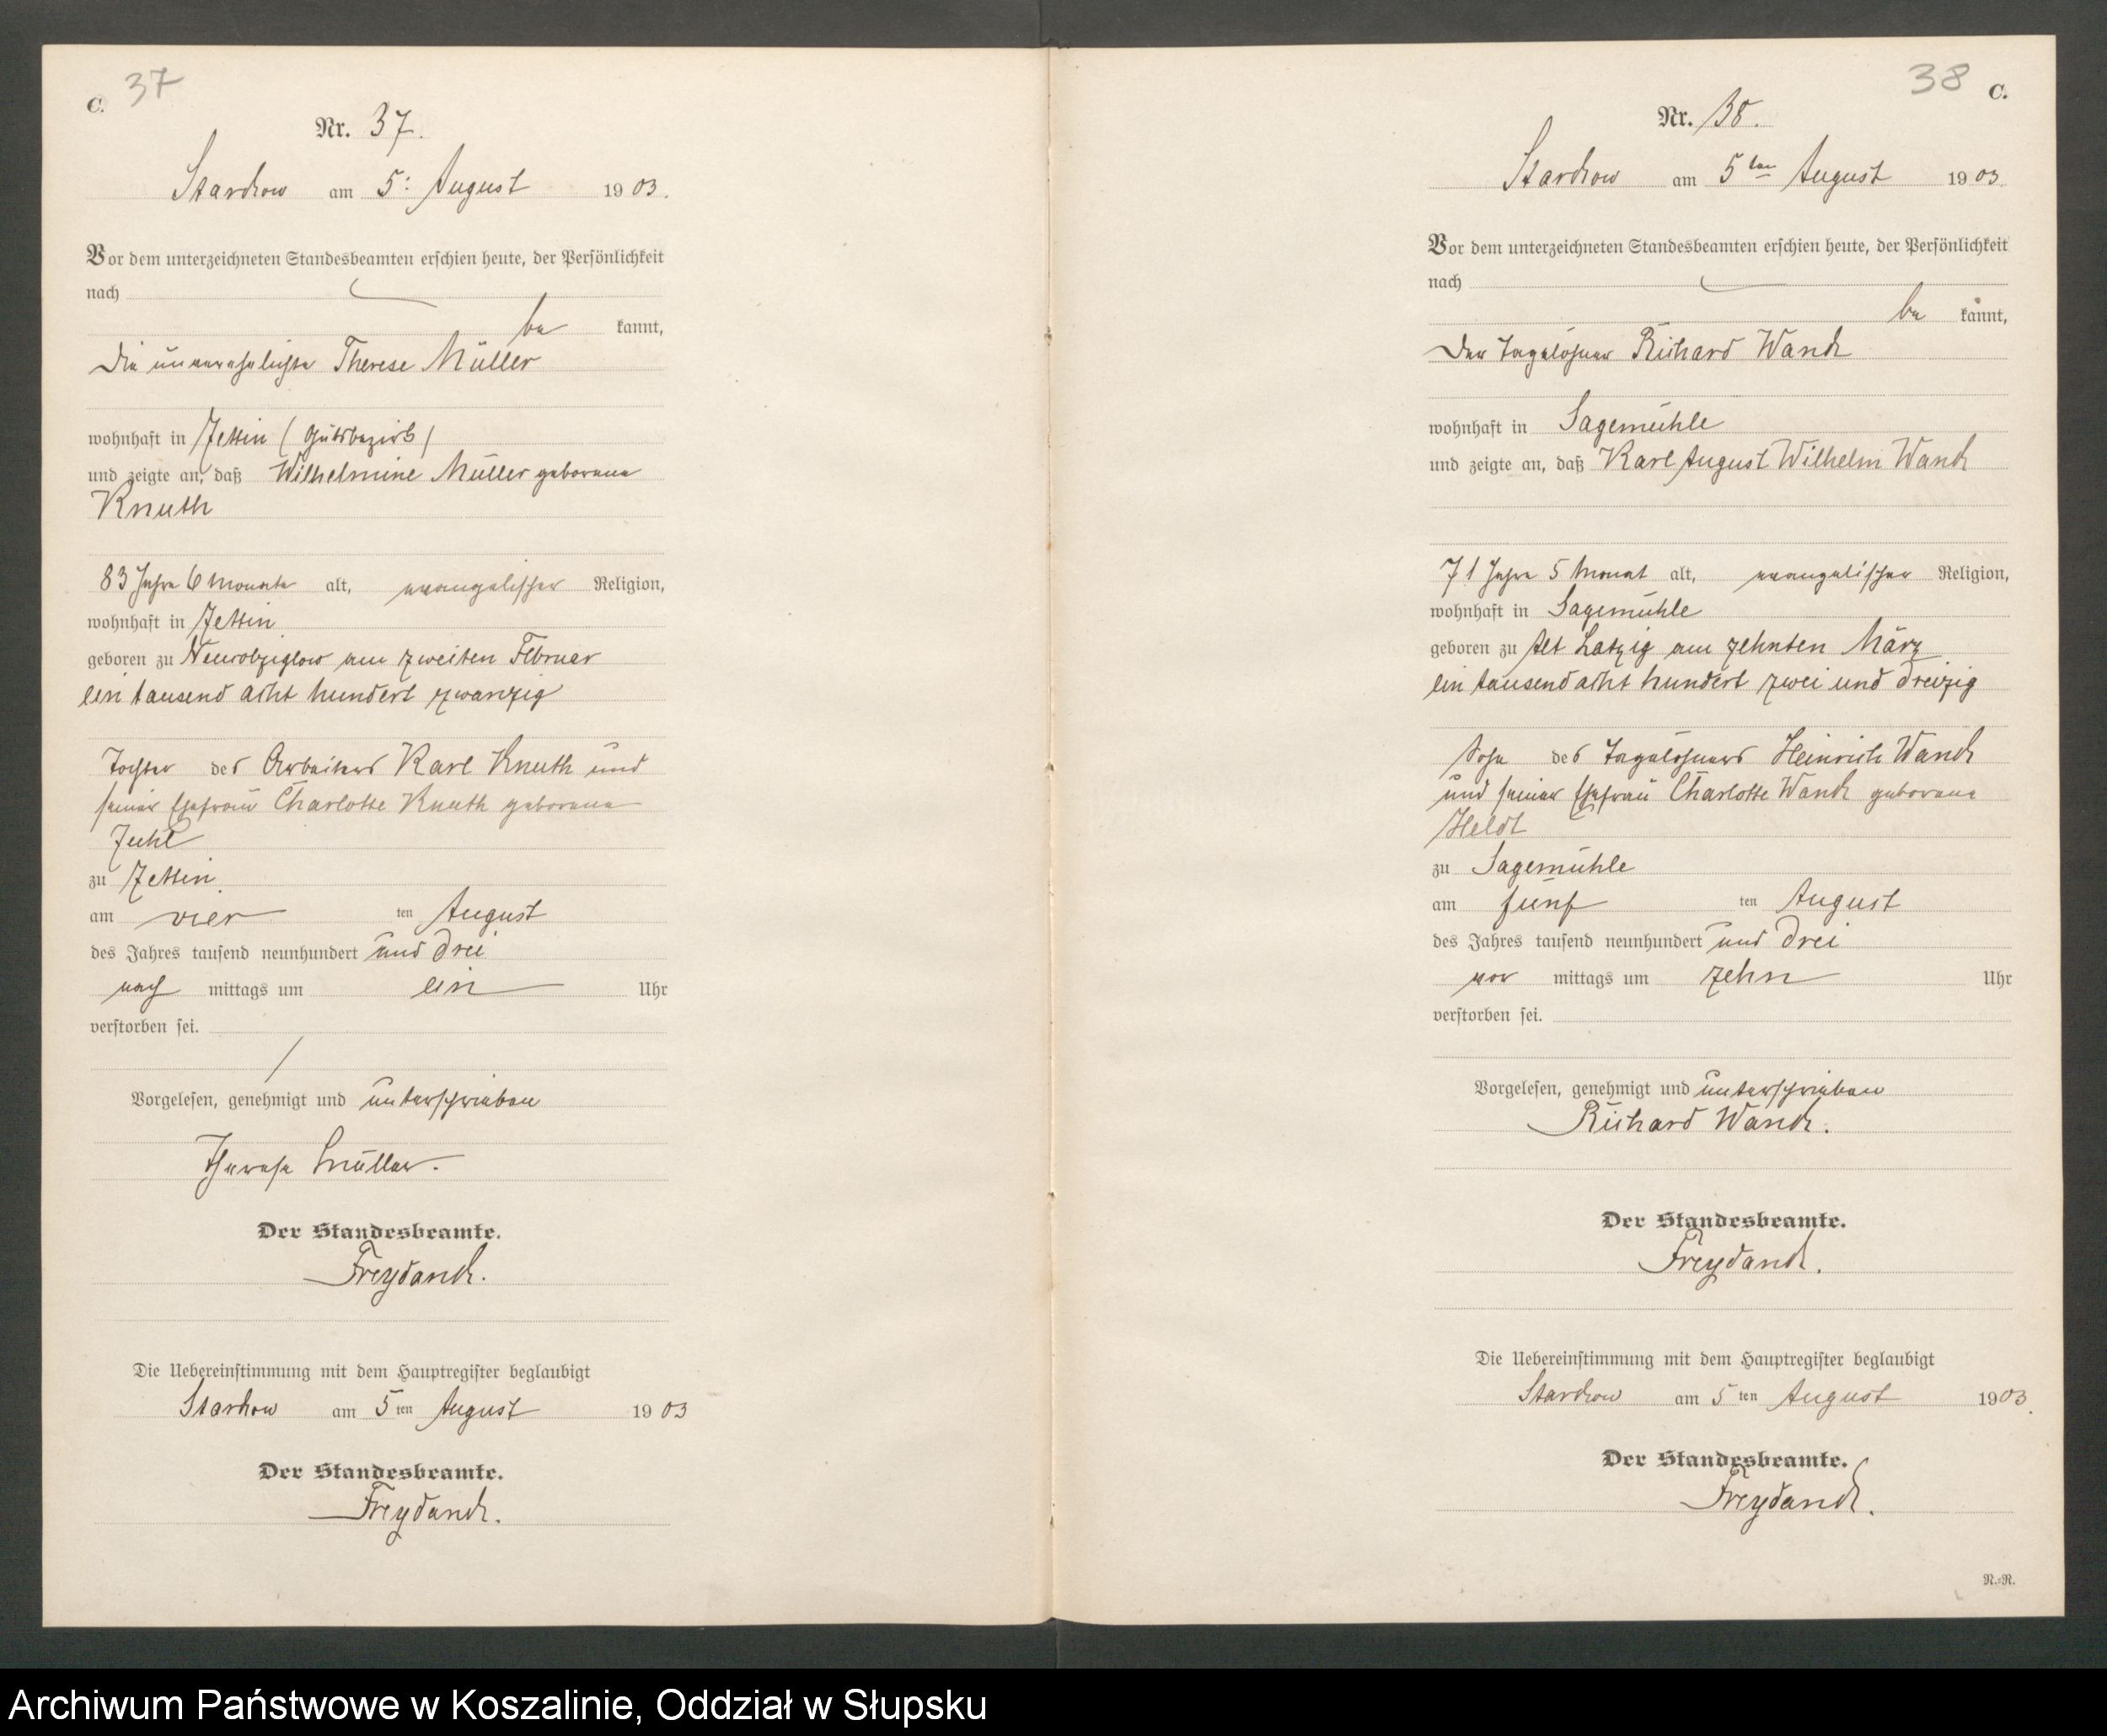 C. 37
Nr. 37.
Starckow am 5: August 1903.
Vor dem unterzeichneten Standesbeamten erschien heute, der Persönlichkeit
nach
be kannt,
die unverehelichte Therese Müller
wohnhaft in Zettin (Gutsbezirk)
und zeigte an, daß Wilhelmine Müller geborene
Knuth
83 Jahre 6 Monate alt, evangelischer Religion,
wohnhaft in Zettin
geboren zu am zweiten Februar
ein tausend acht hundert zwanzig
Tochter des Arbeiters Karl Knuth und
seiner Ehefrau Charlotte Knuth geborene
zu Zettin.
am vier ten August
des Jahres tausend neunhundert und drei
nach mittags um ein Uhr
verstorben sei.
Vorgelesen, genehmigt und unterschrieben
Therese Müller.
Der Standesbeamte.
Freydanck.
Die Uebereinstimmung mit dem Hauptregister beglaubigt
Starkow am 5 ten August 1903
Der Standesbeamte.
Freydanck.
38 C.
Nr. 38.
Starckow am 5ten August 1903
Vor dem unterzeichneten Standesbeamten erschien heute, der Persönlichkeit
nach
be kannt,
der Tagelöhner Richard Wanck
wohnhaft in Sagemühle
und zeigte an, daß Karl August Wilhelm Wanck
71 Jahre 5 Monat alt, evangelischer Religion,
wohnhaft in Sagemühle
geboren zu Alt Latzig am zehnten März
ein tausend acht hundert zwei und dreizig
Sohn des Tagelöhners Heinrich Wanck
und seiner Ehefrau Charlotte Wanck geborene
Heldt
zu Sagemühle
am fünf ten August
des Jahres tausend neunhundert und drei
vor mittags um zehn Uhr
verstorben sei.
Vorgelesen, genehmigt und unterschrieben
Richard Wanck.
Der Standesbeamte.
Freydanck.
Die Uebereinstimmung mit dem Hauptregister beglaubigt
Starckow am 5 ten August 1903.
Der Standesbeamte.
Freydanck.
N.-N.
Archiwum Państwowe w Koszalinie, Oddział w Słupsku